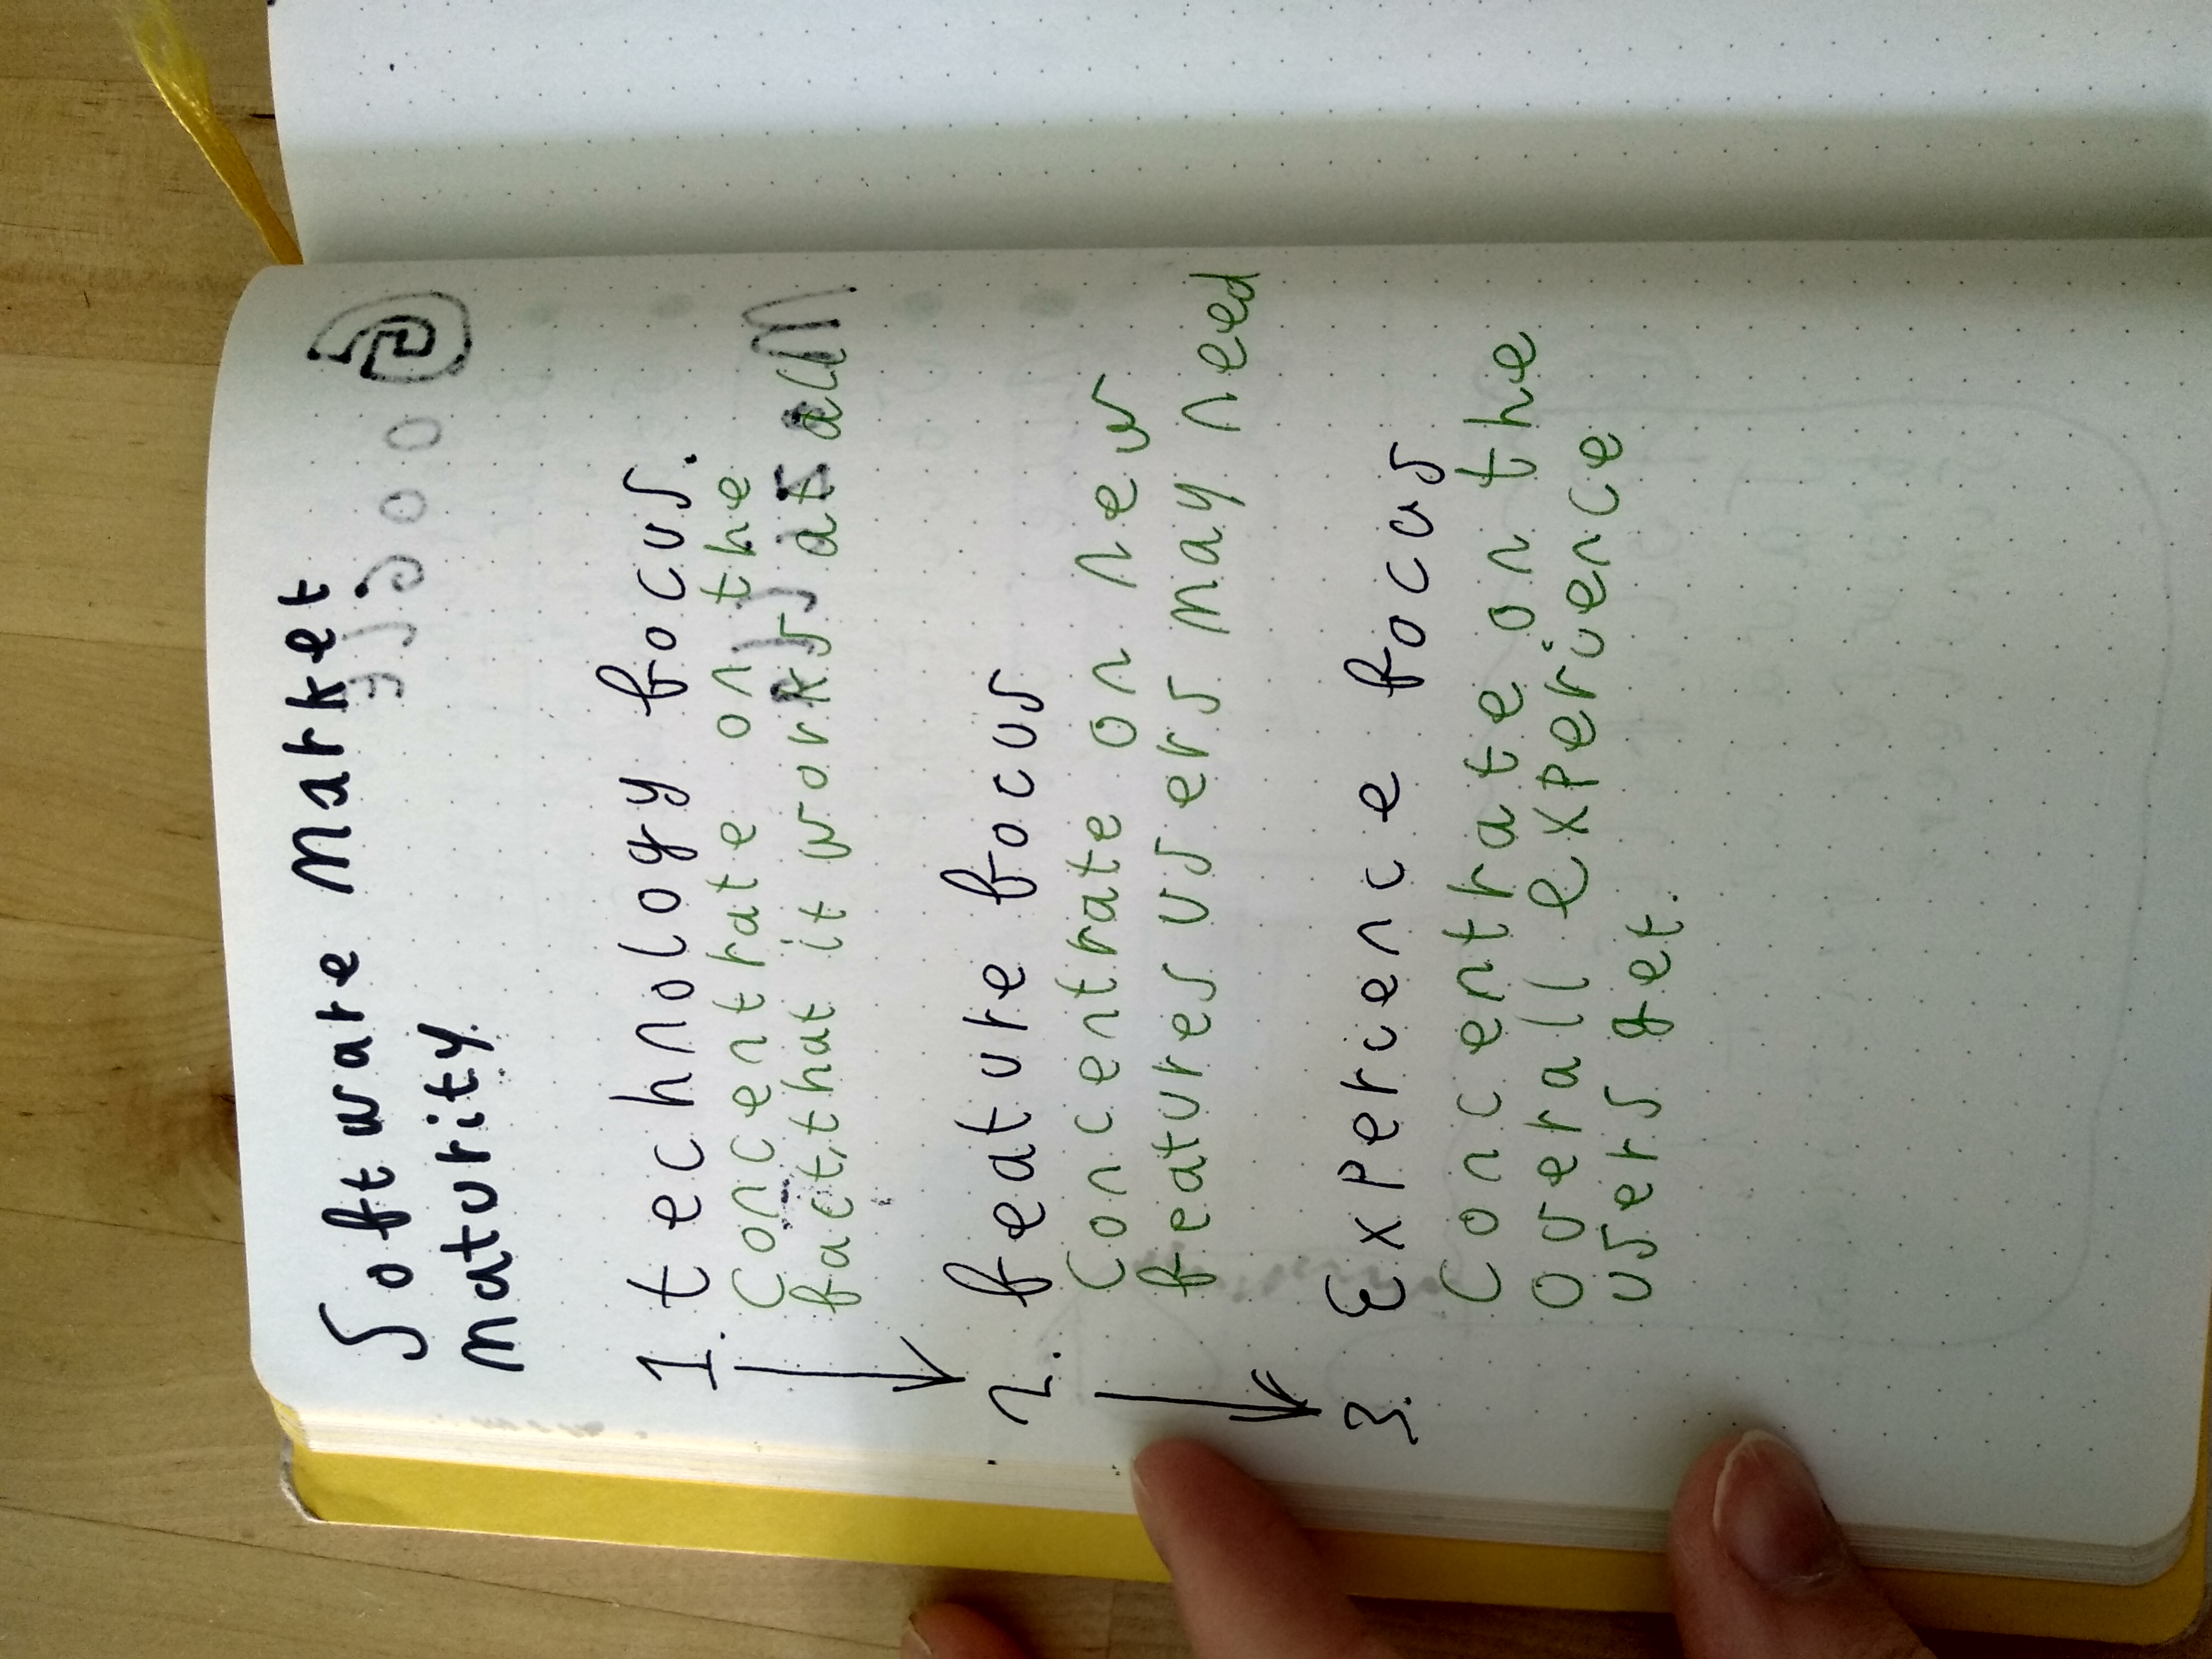 Software Market
maturity
1. technology focus.
Concentrate on the
fact, that it works at all
2. feature focus
Concentrate on new
features users may need
3. Experience focus
Concentrate on the
overall experience
users get.